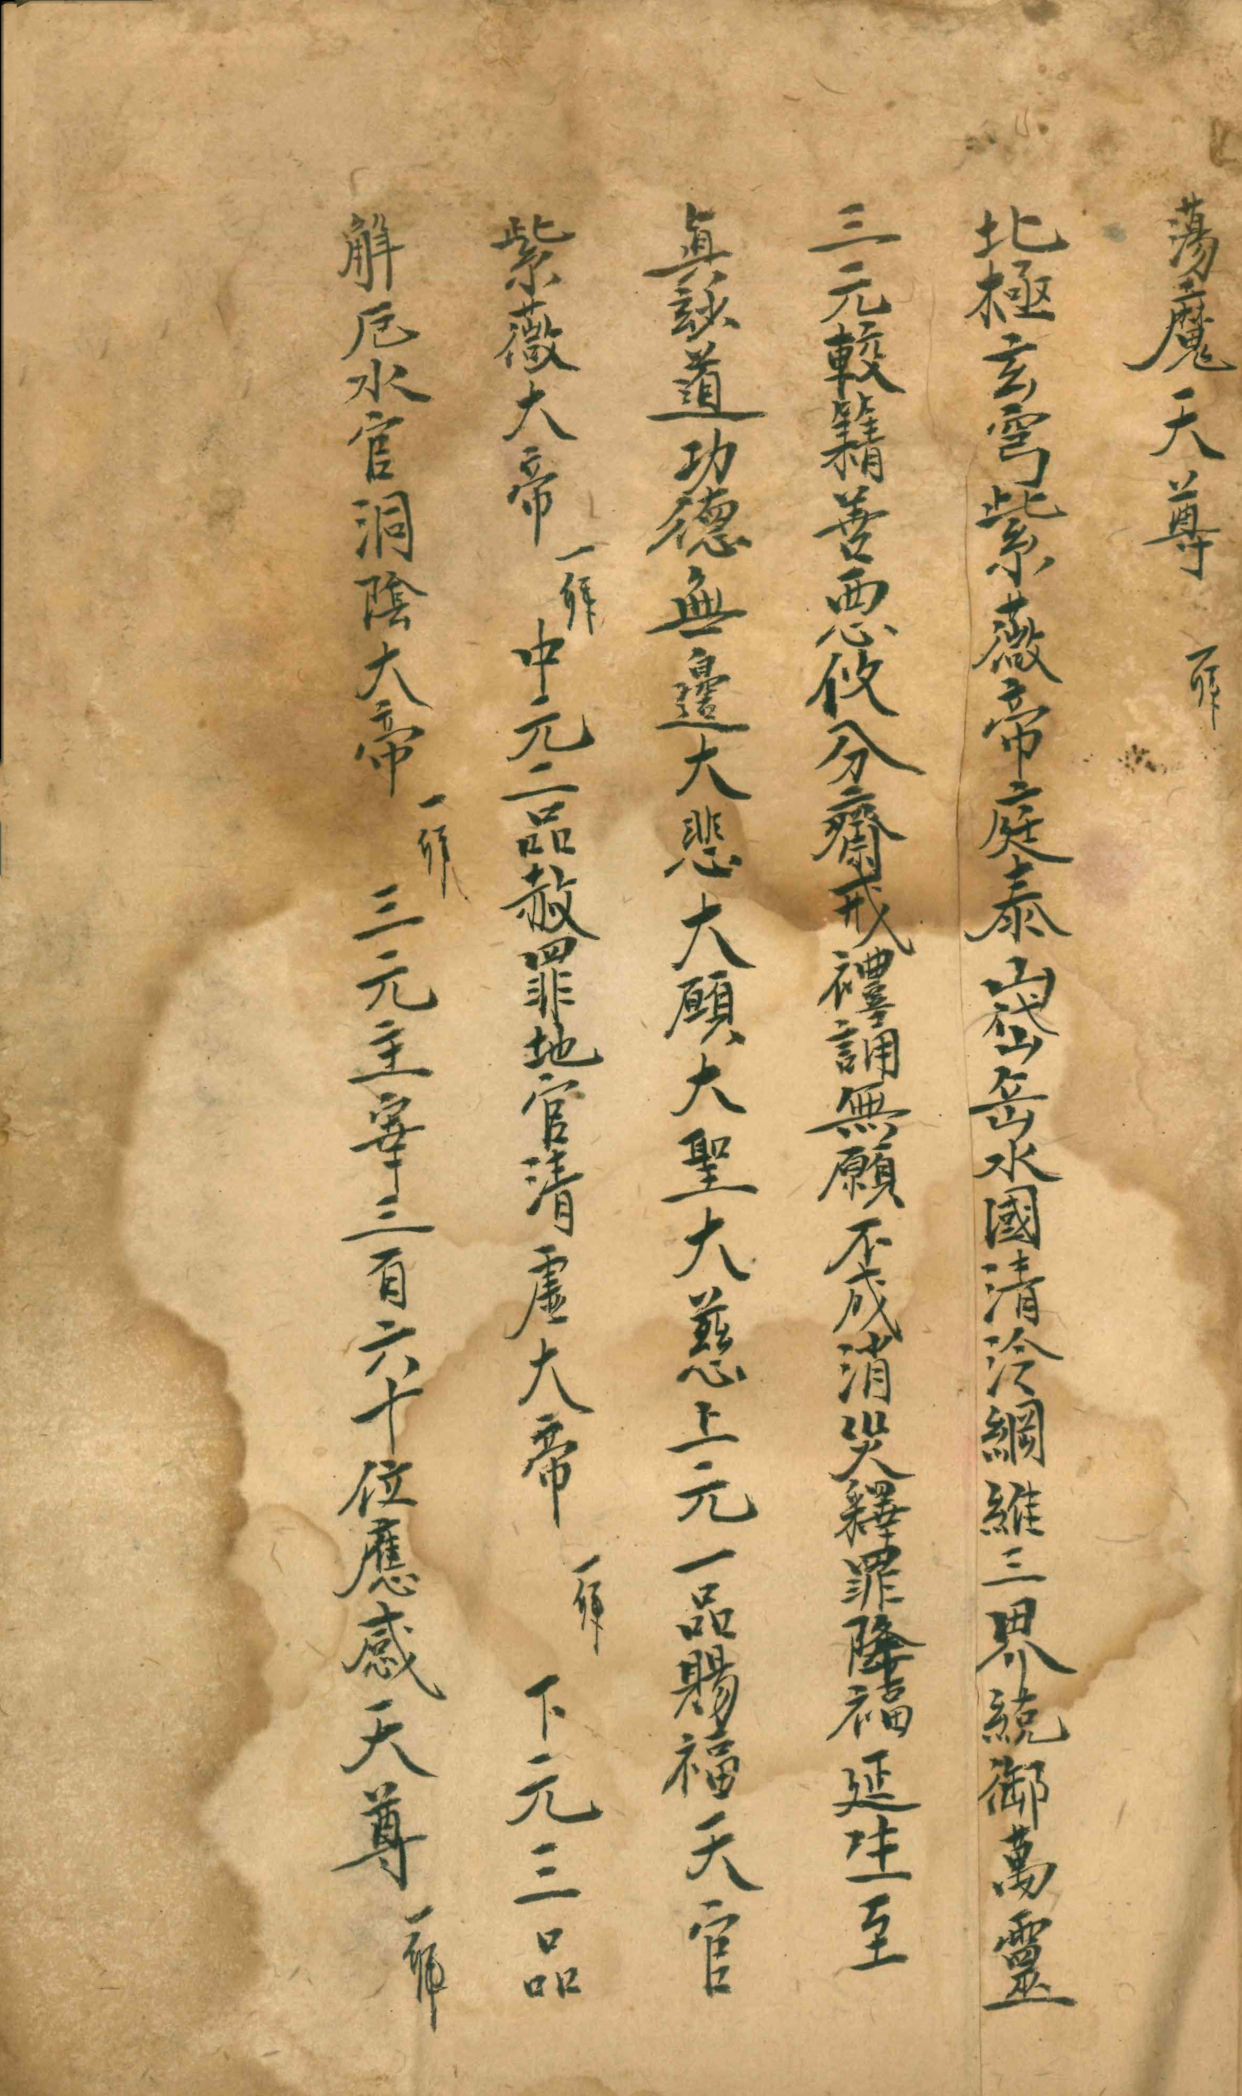 蕩魔天尊 一拜
北極玄穹紫薇帝庭泰山岱岳水國清泠綱維三界統御萬靈
三元較籍善惡攸分齋戒禮誦無願不成消災釋罪降福延生至
真玅道功德無邊大悲大願大聖大慈上元一品賜福天官
紫薇大帝 一拜 中元二品赦罪地官清虛大帝 一拜 下元三品
解厄水官洞陰大帝 一拜 三元主宰三百六十位應感天尊 一拜